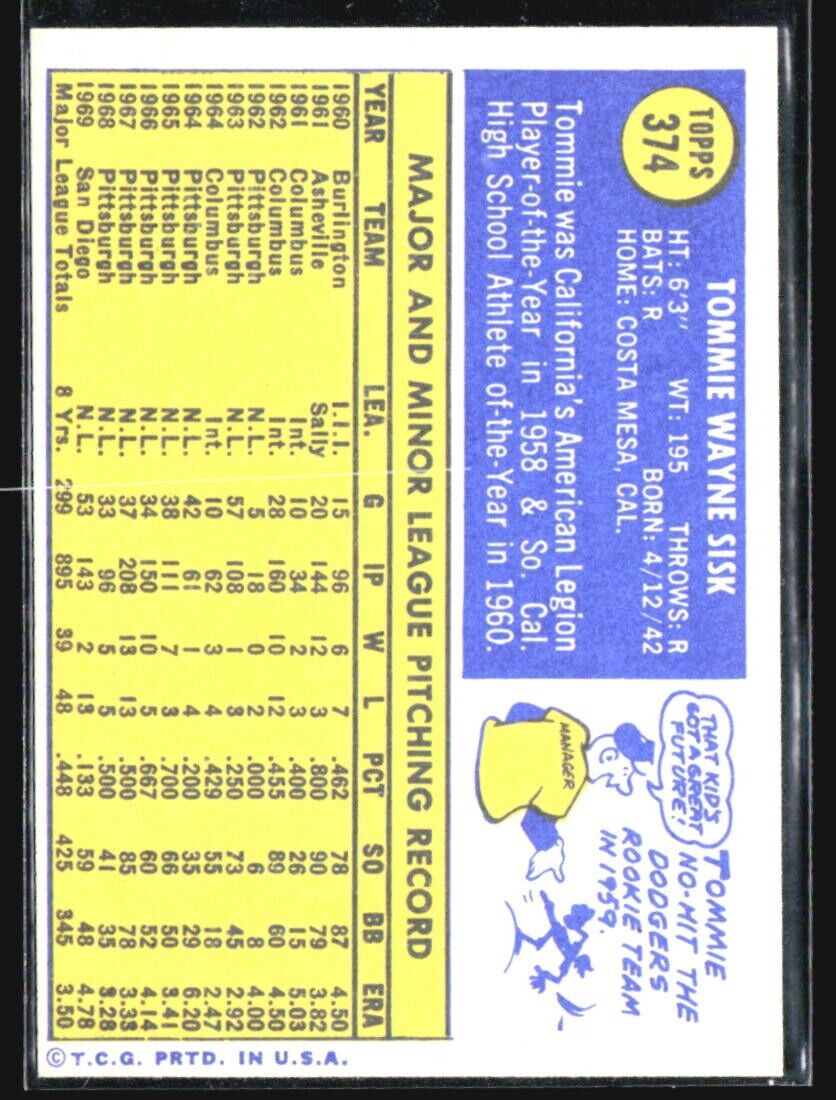 TOPPS
374
TOMMIE WAYNE SISK
HT: 6'3" WT: 195 THROWS: R
BATS: R BORN: 4/12/42
HOME: COSTA MESA, CAL.
Tommie was California's American Legion
Player-of-the-Year in 1958 & So. Cal.
High School Athlete of-the-Year in 1960.
THAT KID'S
GOT A GREAT
FUTURE!
MANAGER
TOMMIE
NO-HIT THE
DODGERS
ROOKIE TEAM
IN 1959.
MAJOR AND MINOR LEAGUE PITCHING RECORD
YEAR TEAM LEA. G IP W L PCT SO BB ERA
1960 Burlington I.I.I. 15 96 6 7 .462 78 87 4.50
1961 Asheville Sally 20 144 12 3 .800 90 79 3.82
1961 Columbus Int. 10 34 2 3 .400 26 15 5.03
1962 Columbus Int. 28 160 10 12 .455 89 60 4.50
1962 Pittsburgh N.L. 5 18 0 2 .000 6 8 4.00
1963 Pittsburgh N.L. 57 108 1 3 .250 73 45 2.92
1964 Columbus Int. 10 62 3 4 .429 55 18 2.47
1964 Pittsburgh N.L. 42 61 1 4 .200 35 29 6.20
1965 Pittsburgh N.L. 38 111 7 3 .700 66 50 3.41
1966 Pittsburgh N.L. 34 150 10 5 .667 60 52 4.14
1967 Pittsburgh N.L. 37 208 13 13 .500 85 78 3.33
1968 Pittsburgh N.L. 33 96 5 5 .500 41 35 3.28
1969 San Diego N.L. 53 143 2 13 .133 59 48 4.78
Major League Totals 8 Yrs. 299 895 39 48 .448 425 345 3.50
© T.C.G. PRTD. IN U.S.A.